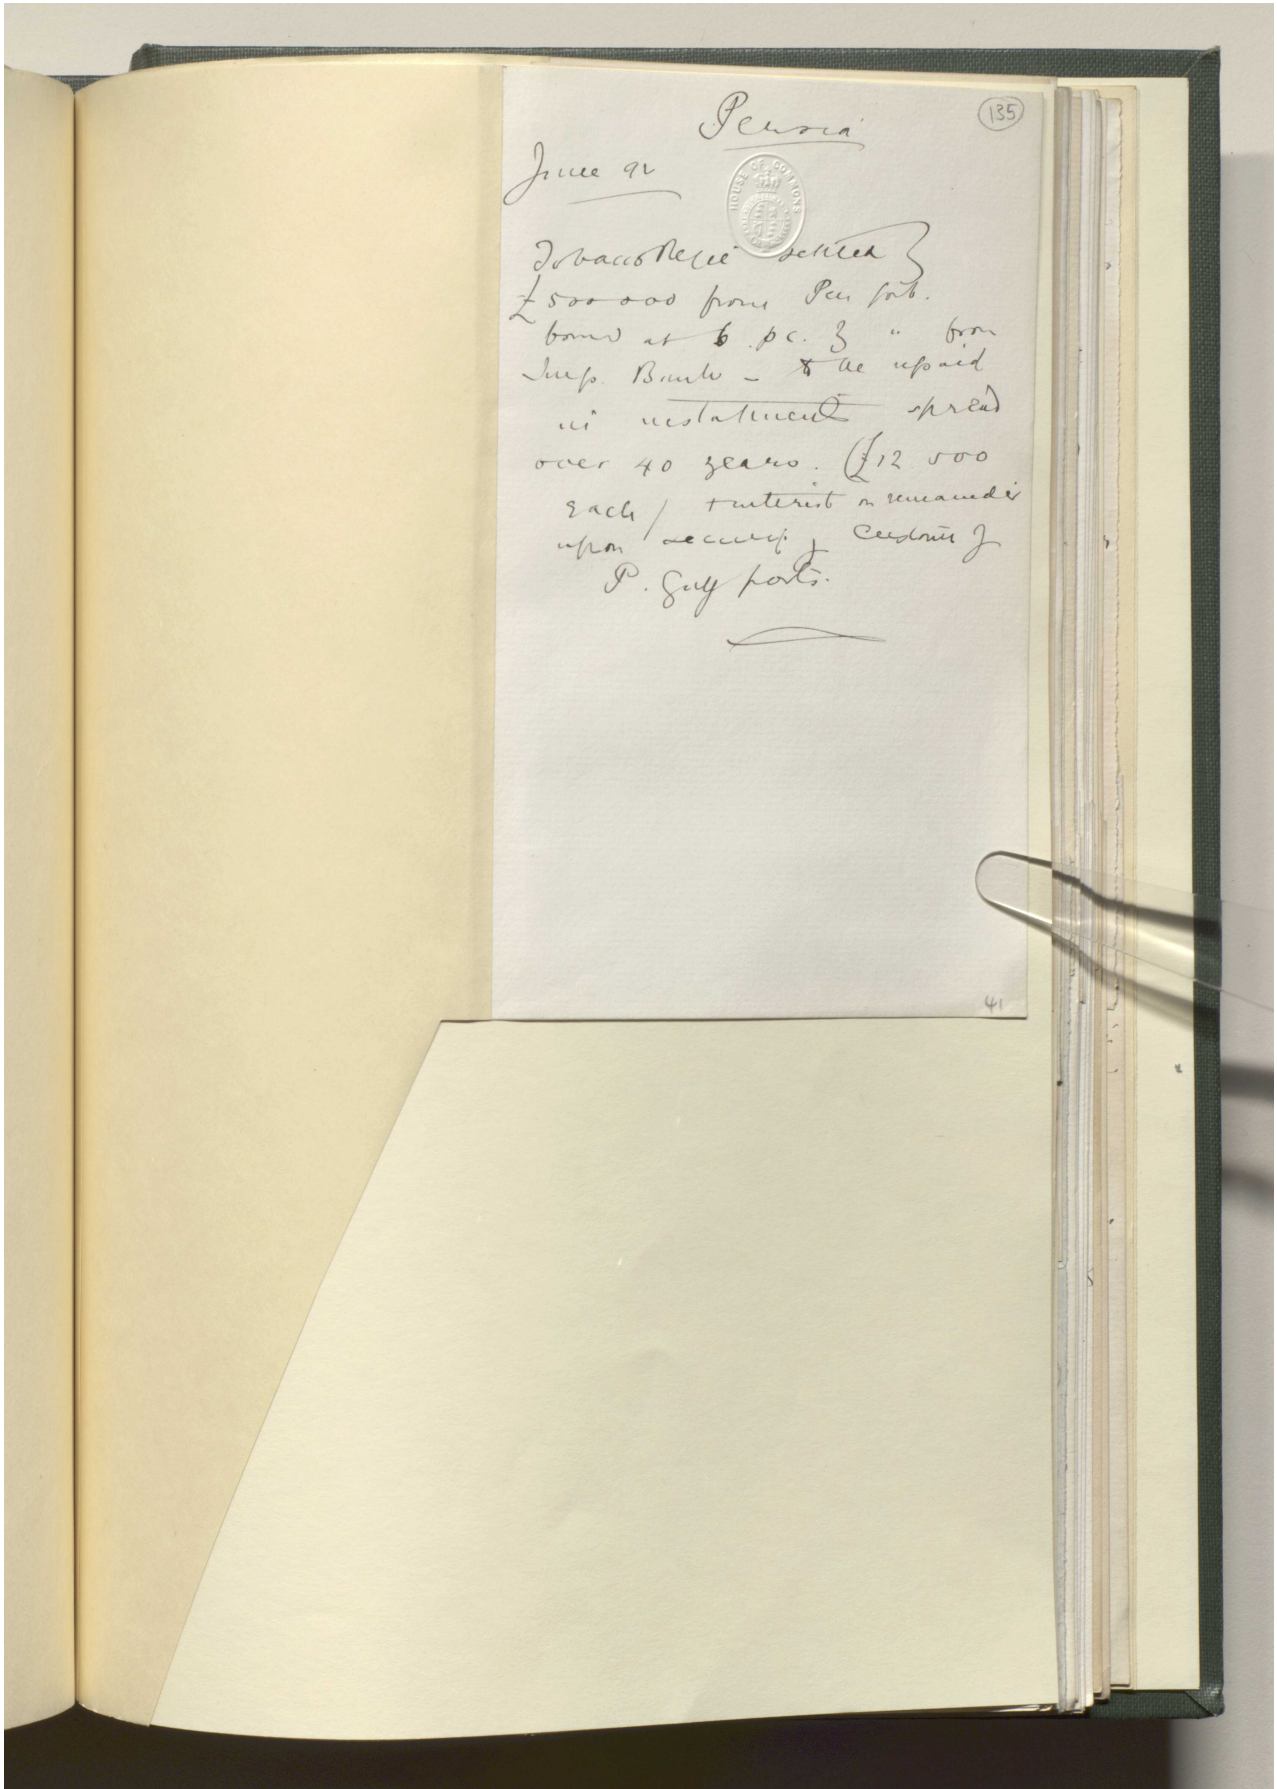 135
Persia
June 92
HOUSE OF COMMONS
Tobacco Regie settled by
£500 000 from Per Govt.
borrd at 6 p.c. by " from
Imp. Bank - to be repaid
in instalments spread
over 40 years. (£12 500
each) + interest on remainder
upon security of Customs of
P. Gulf ports.
41